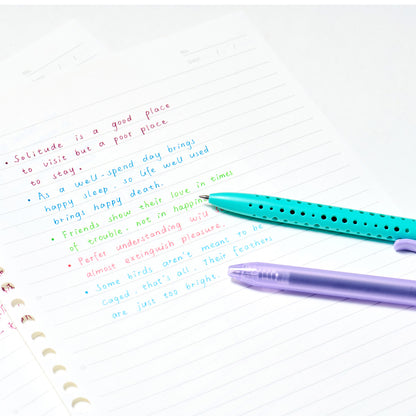 No.
Date
• Solitude is a good place
to visit but a poor place
to stay.
• As a well-spend day brings
happy sleep, so life well used
brings happy death.
• Friends show their love in times
of trouble, not in happin
• Perfer understanding will
almost extinguish pleasure.
• Some birds aren't meant to be
caged, that's all. Their feathers
are just too bright.